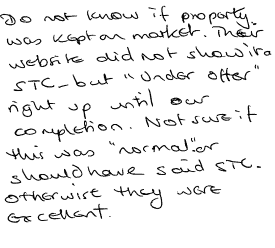 Do not know if property.
was kept on market. Their
website did not show it a
STC - but "Under offer"
right up until our
completion. Not sure if
this was "normal" or
should have said STC.
Otherwise they were
excellent.